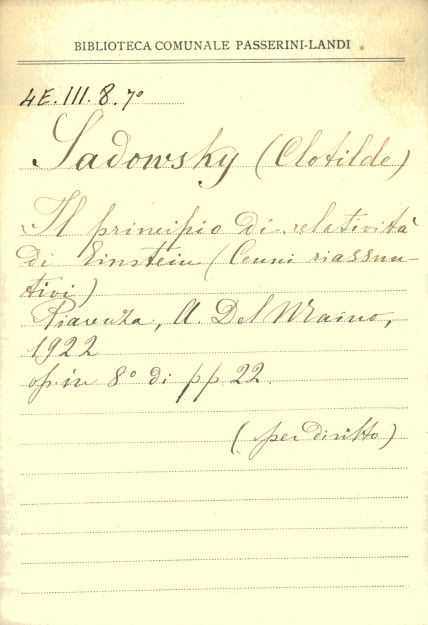 BIBLIOTECA COMUNALE PASSERINI-LANDI
4E. III. 8. 7º
Sadowsky (Clotilde)
Il principio di relatività
di Einstein (Cenni riassun-
tivi)
Piacenza, A. Del Maino,
1922
op. in 8º di pp 22.
(per diritto)